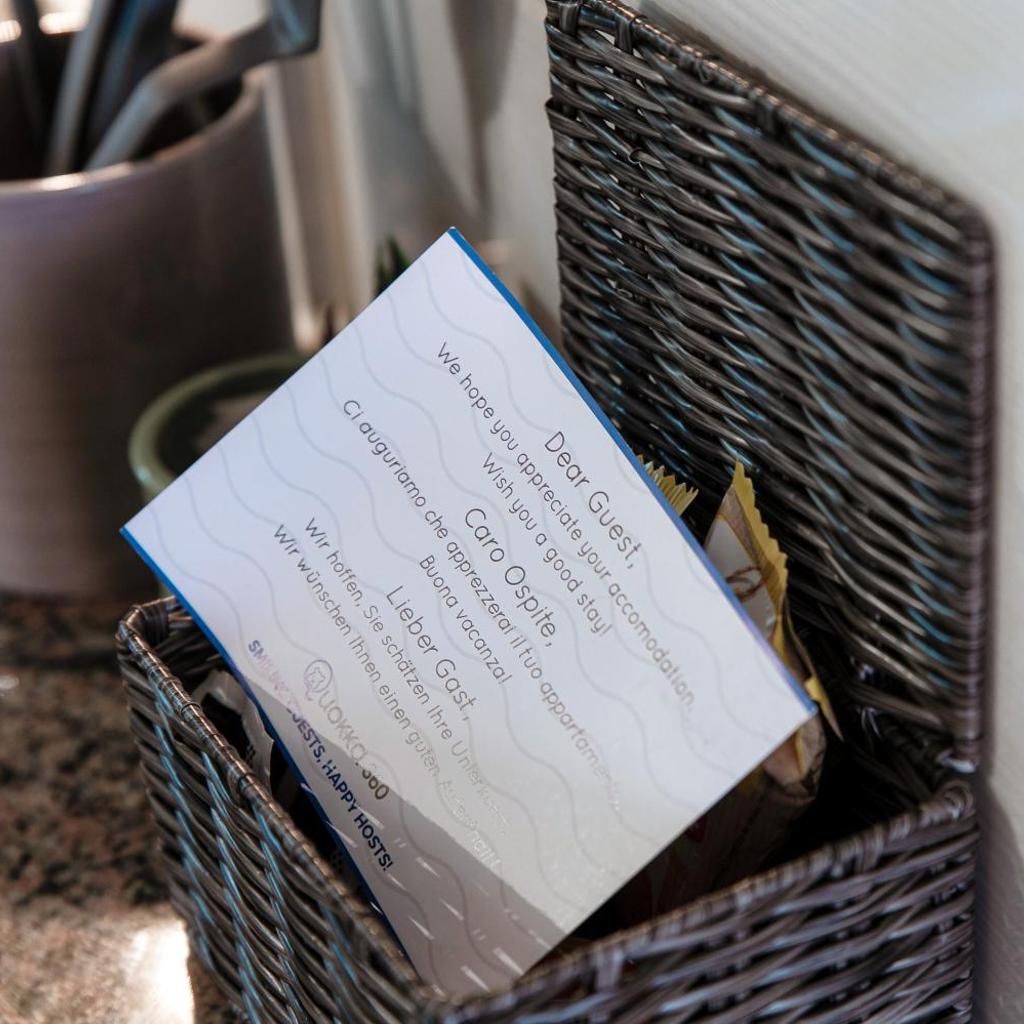 Dear Guest,
We hope you appreciate your accomodation.
Wish you a good stay!
Caro Ospite,
Ci auguriamo che apprezzerai il tuo appartamento.
Buona vacanza!
Lieber Gast,
Wir hoffen, Sie schätzen Ihre Unterkunft.
Wir wünschen Ihnen einen guten Aufenthalt!
QUOKKA 360
SMILING GUESTS, HAPPY HOSTS!